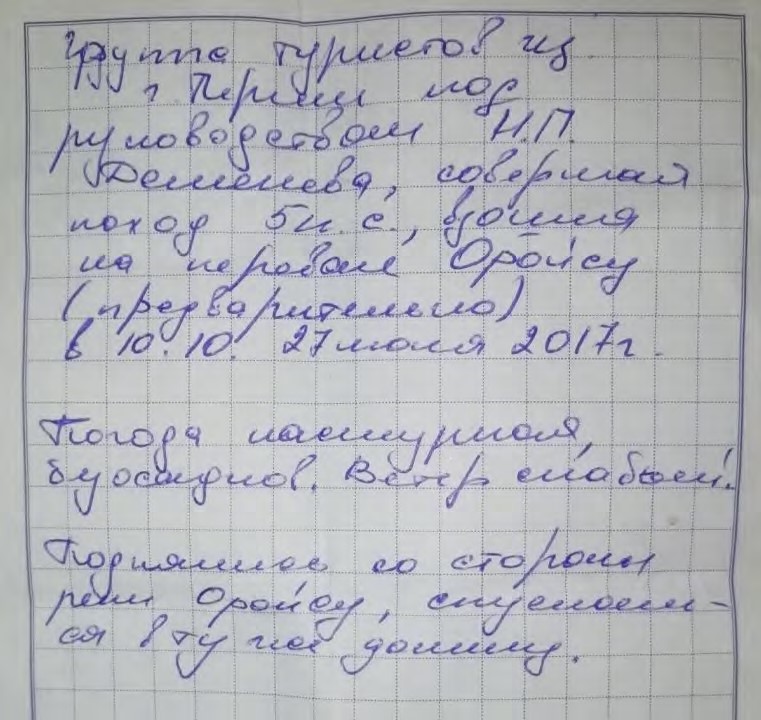 Группа туристов из
г. Перми под
руководством Н.П.
Деменева, совершая
поход 5 к.с., взошла
на перевал Оройсу
(предварительно)
в 10.10. 27 июля 2017г.
Погода пасмурная,
без осадков. Ветер слабый.
Поднялись со стороны
реки Оройсу, спускаем-
ся в ту же долину.